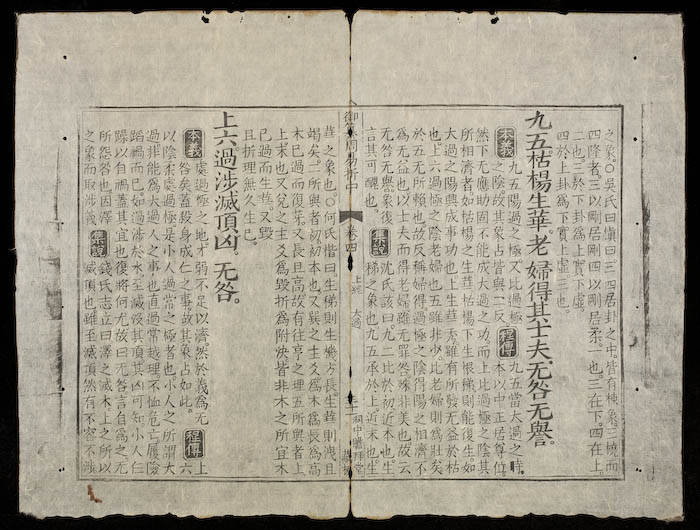 之象○吳氏曰愼曰三四居卦之中皆有棟象三橈而
四隆者三以剛居剛四以剛居柔一也三在下四在上
二也三於下卦為上實下虛
四於上卦為下實上虛三也
九五枯楊生華老婦得其士夫无咎无譽
本義 九五陽過之極又比過極
之陰故其象占皆與二反
程傳 九五當大過之時
本以中正居尊位
然下无應助固不能成大過之功而上比過極之陰其
所相濟者如枯楊之生華枯楊下生根稊則能復生如
大過之陽興成事功也上生華秀雖有所發无益於枯
也上六過極之陰老婦也五雖非少比老婦則為壯矣
於五无所賴也故反稱婦得過極之陰得陽之相濟不
為无益也以士夫而得老婦雖无罪咎殊非美也故云
无咎无譽象復
言其可醜也
集說 沈氏該曰九二比於初近本也生
稊之象也九五承於上近末也生
御纂周易折中 卷四 上經 大過
華之象也○何氏楷曰生稊則生機方長生華則洩且
竭矣二所與者初初本也又巽之主爻為木為長為高
木已過而復芽又長且高故有往亨之理五所與者上
上末也又兌之主爻為毀折為附決皆非木之所宜木
已過而生華又毀
且折理無久生已
上六過涉滅頂凶无咎
本義 處過極之地才弱不足以濟然於義為无
咎矣蓋殺身成仁之事故其象占如此
程傳 上六
以陰柔處過極是小人過常之極者也小人之所謂大
過非能為大過人之事也直過常越理不恤危亡履險
蹈禍而已如過涉於水至滅沒其頂其凶可知小人狂
躁以自禍蓋其宜也復將何尤故曰无咎言自為之无
所怨咎也因澤
之象而取涉義
集說 錢氏志立曰澤之滅木上之所以
滅頂也雖至滅頂然有不容不涉